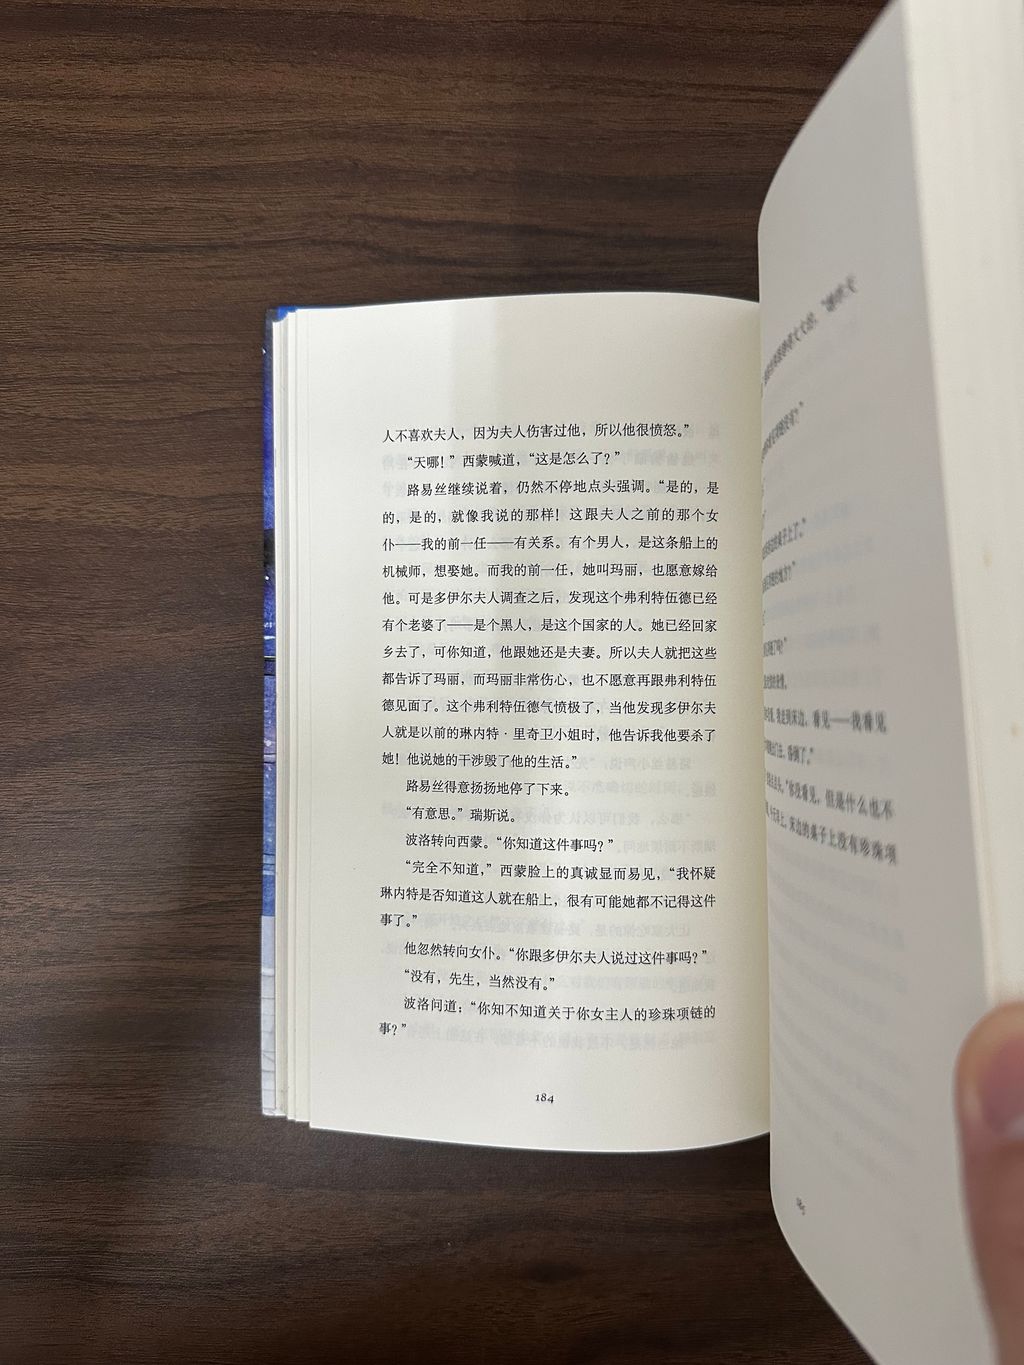 人不喜欢夫人，因为夫人伤害过他，所以他很愤怒。”
“天哪！”西蒙喊道，“这是怎么了？”
路易丝继续说着，仍然不停地点头强调。“是的，是
的，是的，就像我说的那样！这跟夫人之前的那个女
仆——我的前一任——有关系。有个男人，是这条船上的
机械师，想娶她。而我的前一任，她叫玛丽，也愿意嫁给
他。可是多伊尔夫人调查之后，发现这个弗利特伍德已经
有个老婆了——是个黑人，是这个国家的人。她已经回家
乡去了，可你知道，他跟她还是夫妻。所以夫人就把这些
都告诉了玛丽，而玛丽非常伤心，也不愿意再跟弗利特伍
德见面了。这个弗利特伍德气愤极了，当他发现多伊尔夫
人就是以前的琳内特·里奇卫小姐时，他告诉我他要杀了
她！他说她的干涉毁了他的生活。”
路易丝得意扬扬地停了下来。
“有意思。”瑞斯说。
波洛转向西蒙。“你知道这件事吗？”
“完全不知道，”西蒙脸上的真诚显而易见，“我怀疑
琳内特是否知道这人就在船上，很有可能她都不记得这件
事了。”
他忽然转向女仆。“你跟多伊尔夫人说过这件事吗？”
“没有，先生，当然没有。”
波洛问道：“你知不知道关于你女主人的珍珠项链的
事？”
184
我走到床边，看见——我看见
“你没看见，但是什么也不
床边的桌子上没有珍珠项
185